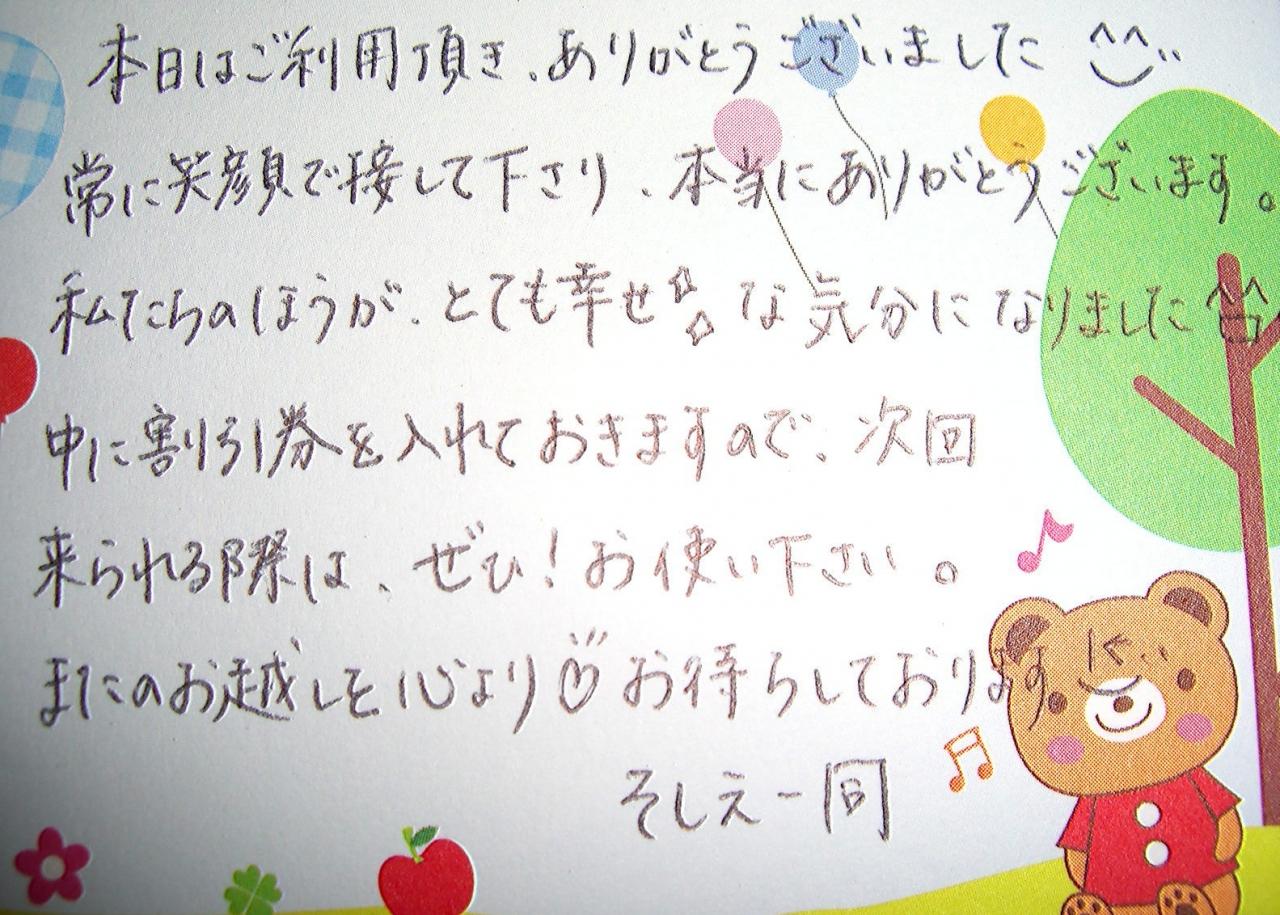 本日はご利用頂き、ありがとうございました ^^
常に笑顔で接して下さり、本当にありがとうございます。
私たちのほうが、とても幸せな気分になりました ^^
中に割引券を入れておきますので、次回
来られる際は、ぜひ!お使い下さい。
またのお越しを心より♡お待ちしております
そしえ一同